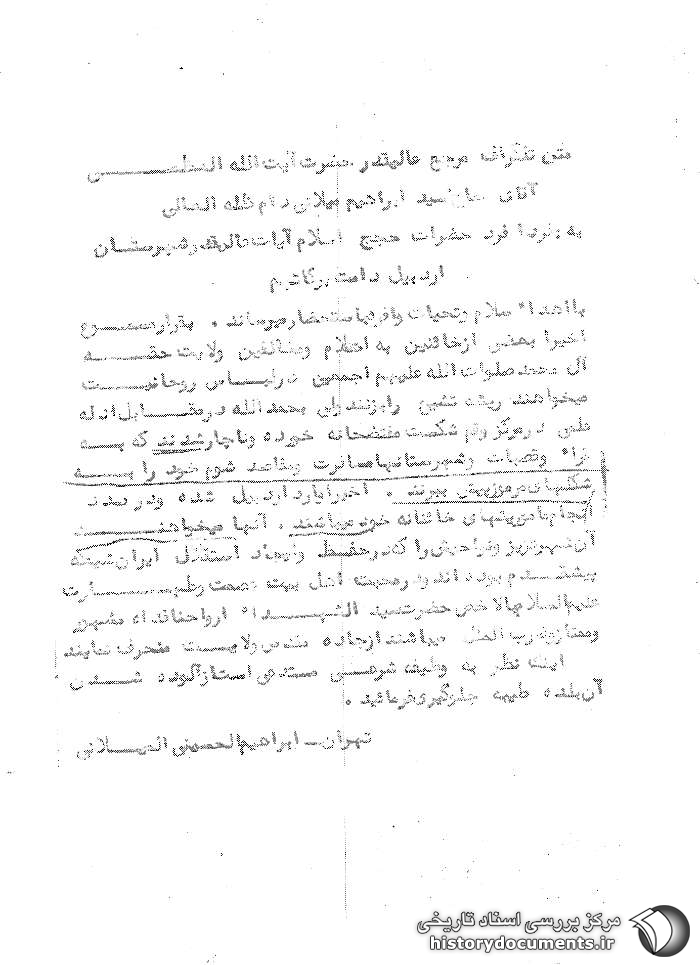 متن تلگراف مرجع عالیقدر حضرت آیت الله العظمی
آقای حاج سید ابراهیم میلانی دام ظله العالی
به یکایک فرد حضرات حجج اسلام آیات عالیقدر شهرستان
اردبیل دامت برکاتهم
با اهداء سلام و تحیات وافره باستحضار میرساند . بقرار مسموع
اخیرا بعضی از خائنین به اسلام و مخالفین ولایت حقه
آل محمد صلوات الله علیهم اجمعین در لباس روحانیت
میخواهند ریشه تشیع را بزنند ولی بحمد الله در مقابل ادله
علمی در مرکز وقم شکست مفتضحانه خورده و ناچار شدند که به
قراء وقصبات وشهرستانها مسافرت ومقاصد شوم خود را به
شکلهای مرموز پیش ببرند . اخیرا وارد اردبیل شده ودر صدد
انجام ماموریتهای خائنانه خود میباشند . آنها میخواهند
آن شهر عزیز ونواحیش را که در حفظ وایجاد استقلال ایران همیشه
پیشقدم بوده اند ودر محبت اهل بیت عصمت وطهارت
علیهم السلام بالاخص حضرت سید الشهداء ارواحنا فداه مشهور
وممتاز وضرب المثل میباشند از جاده مقدس ولایت منحرف نمایند
اینک نظر به وظیفه شرعی مستدعی است از آلوده شدن
آن بلده طیبه جلوگیری فرمائید .
تهران - ابراهیم الحسینی المیلانی
مرکز بررسی اسناد تاریخی
historydocuments.ir